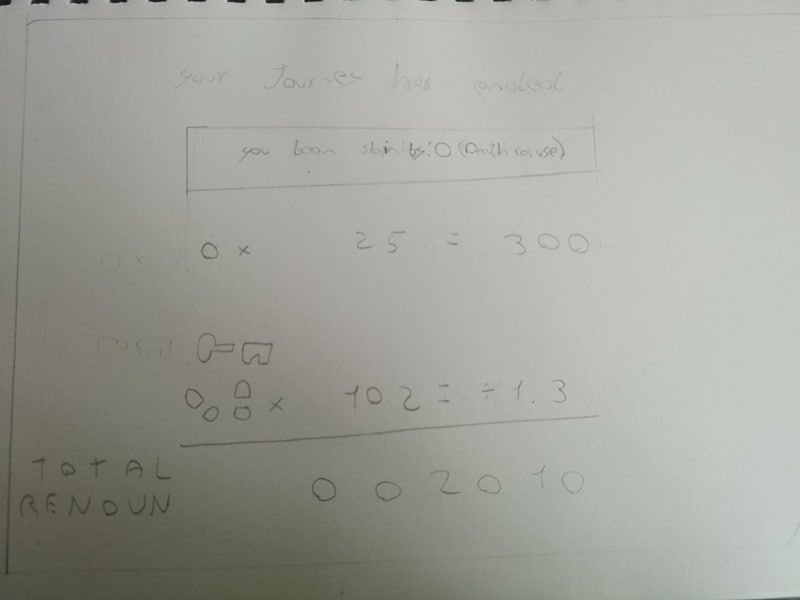 your Journey has ended
you been slain by: O (Death couse)
O × 25 = 300
× 102 = ÷1.3
TOTAL
RENOUN
002010